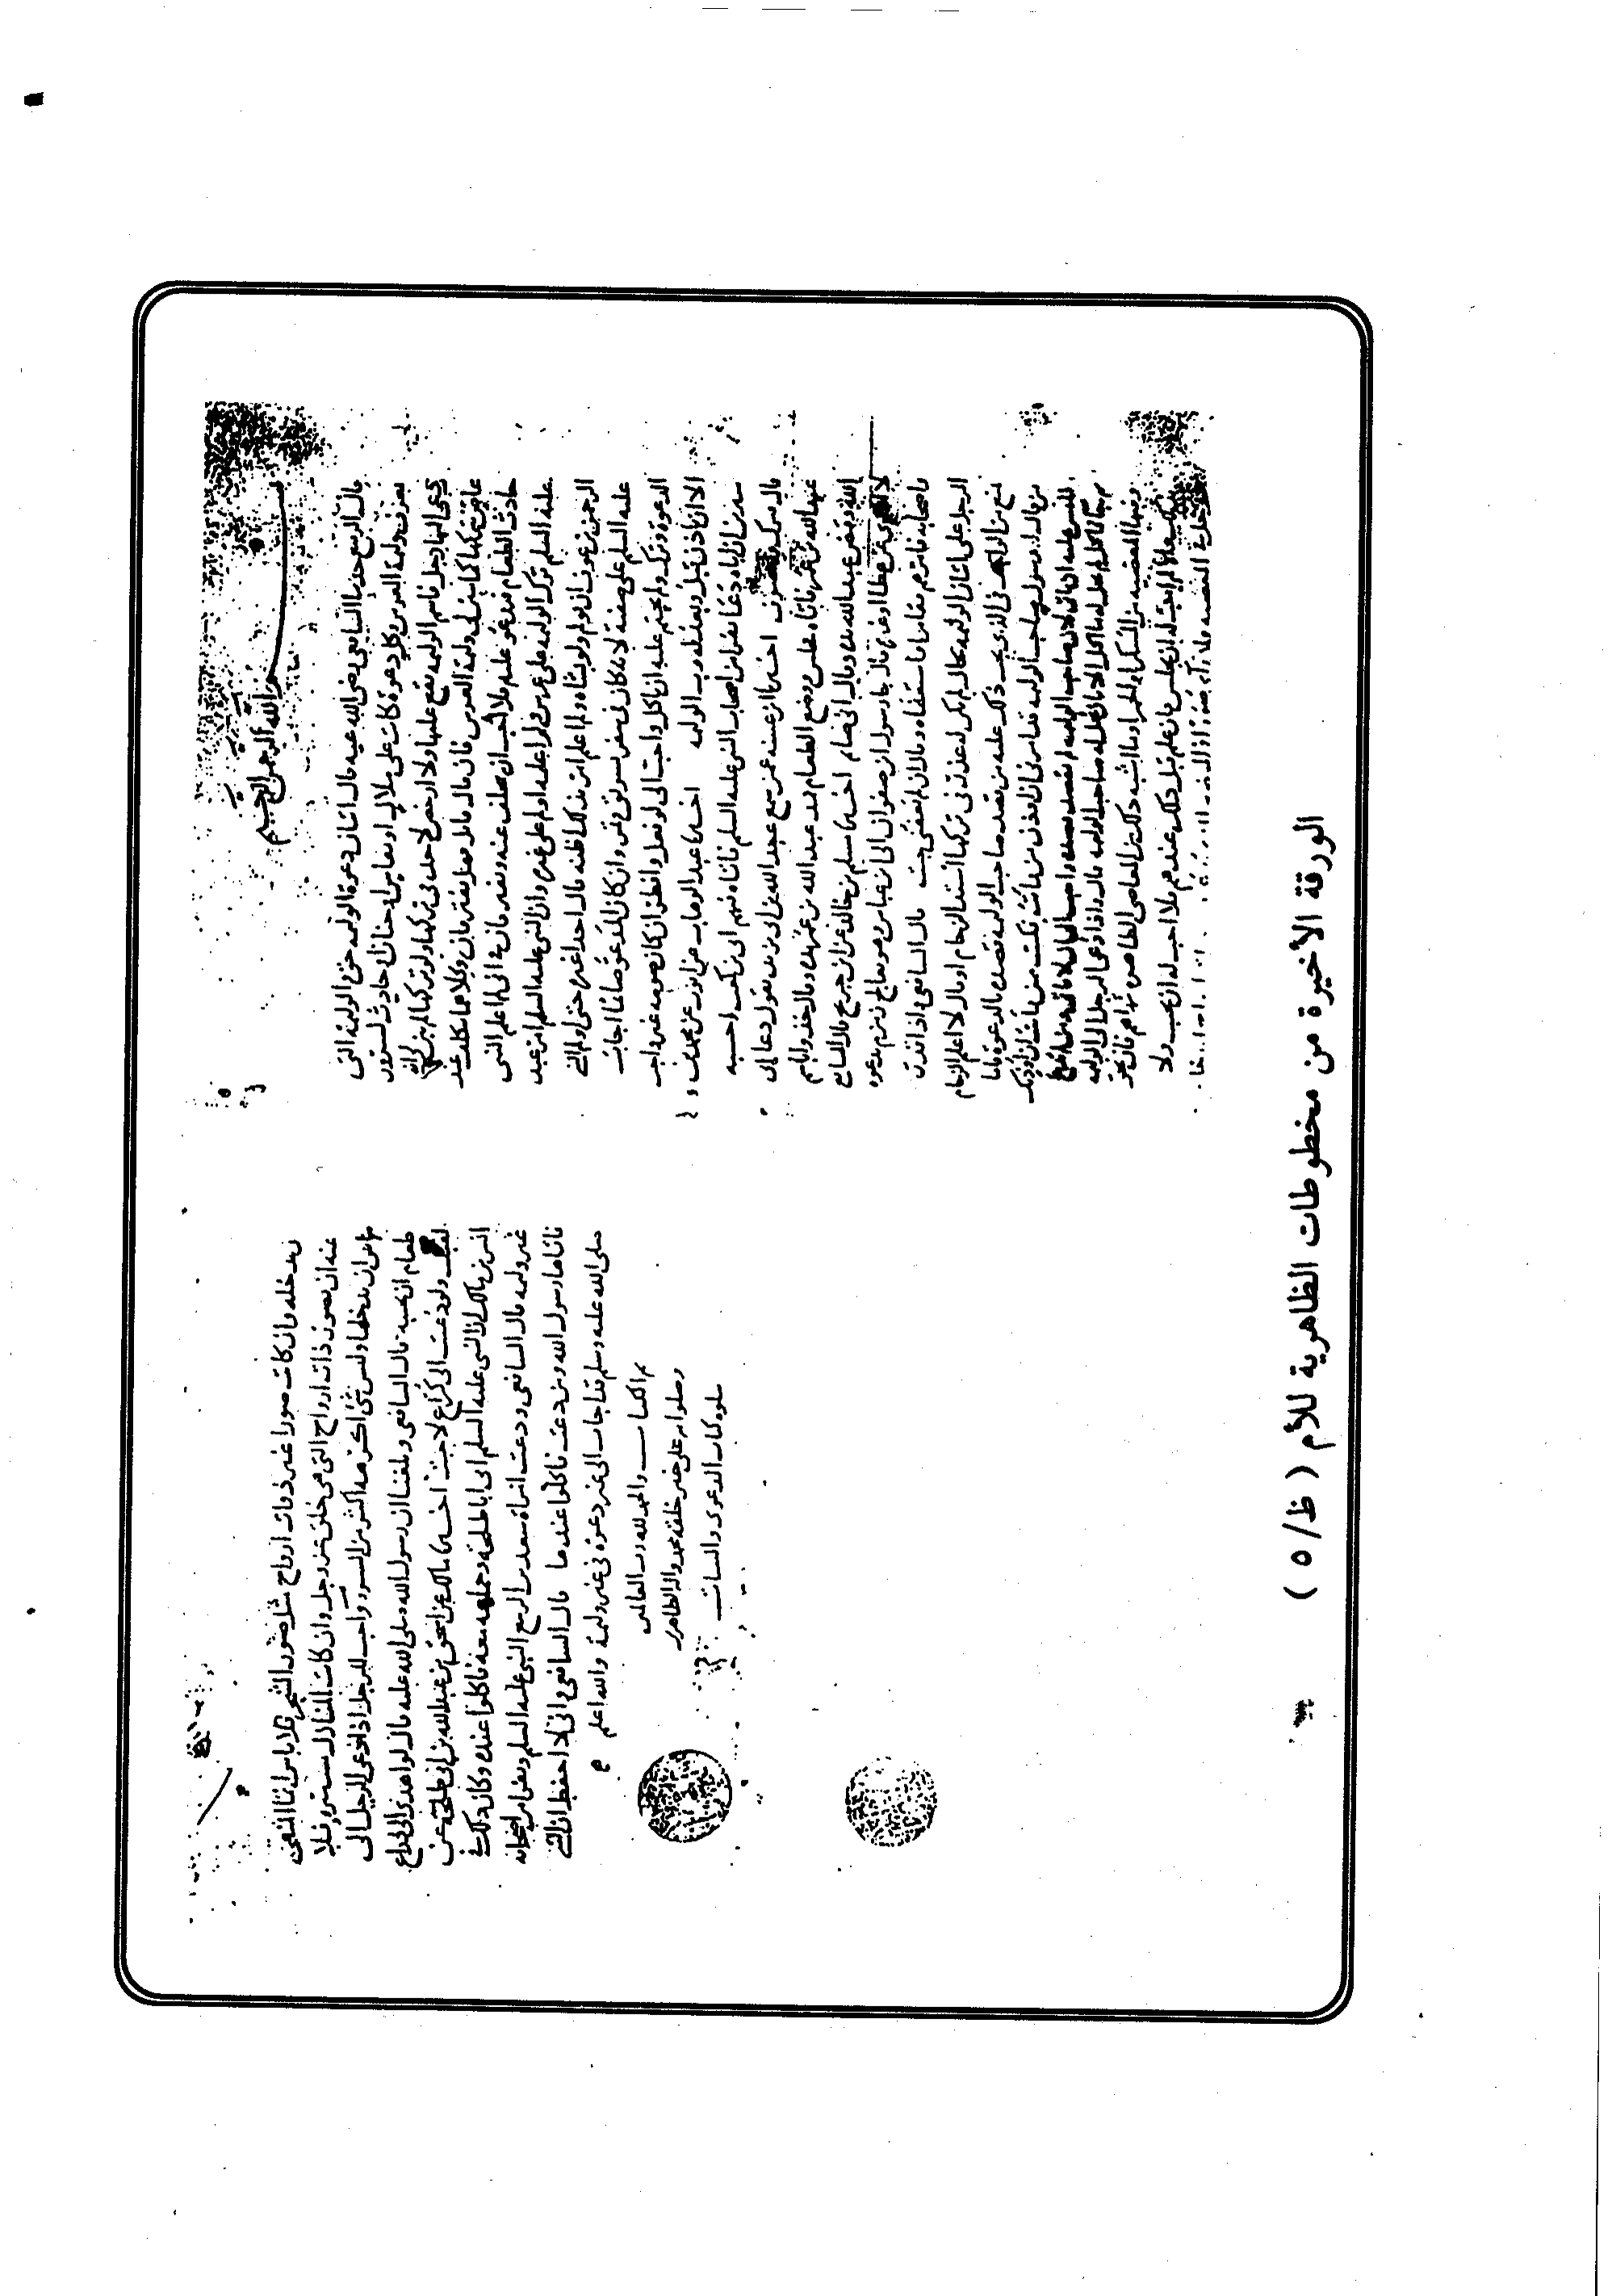 بسم الله الرحمن الرحيم
قال الربيع حدثنا الشافعي رضي الله عنه قال اتيان دعوة الوليمة حق والوليمة التي
تعرف وليمة العرس وكل دعوة كانت على املاك او نفاس او ختان او حادث سرور
دعي اليها رجل فاسم الوليمة يقع عليها ولا ارخص لاحد في تركها ولو تركها لم يبن لي انه
عاص في تركها كما يبين لي في وليمة العرس فان قال قائل فهل يفترقان وكلاهما تكلف عند
حادث الطعام
عليه السلم ترك الوليمة على عرس ولم اعلمه اولم على غيره وان النبي عليه السلم امر عبد
الرحمن بن عوف ان يولم ولو بشاة ولم اعلم امر بذلك اظنه قال احدا غيره حتى اولم النبي
عليه السلم على صفية لانه كان في سفر بسويق وتمر وان كان المدعو صائما اجاب
الدعوة وبرك ولم يحتم عليه ان ياكل واحب الي لو فعل وافطر ان كان صومه غير واجب
الا ان ياذن قبل وبعد له رب الوليمة اخبرنا عبد الوهاب عن ايوب عن محمد بن
سيرين ان اباه دعا نفرا من اصحاب النبي عليه السلم فاتاه فيهم ابي بن كعب احسبه
قال فبرك وانصرف اخبرنا ابن عيينة عن سمع عبيد الله بن ابي يزيد يقول دعا ابي
عبد الله بن عمر فاتاه فجلس ووضع الطعام فمد عبد الله بن عمر يده وقال خذوا باسم
الله وقبض عبد الله يده وقال اني صائم اخبرنا مسلم بن خالد عن ابن جريج قال الشافعي
لا ادري عن عطا او غيره قال جا رسول ابن صفوان الى ابن عباس وهو يعالج زمزم يدعوه
واصحابه فامرهم فقاموا واستعفاه وقال ان لم يعفني جئت قال الشافعي واذا قدر
الرجل على اتيان الوليمة بحال لم يكن له عذر في تركها اشتد الزحام او قال لا اعلم الزحام
يمنع من الواجب في الذي يجب ذلك عليه من قصد صاحب الوليمة قصده بالدعوة فاما
من قال له رسول صاحب الوليمة قد امرني ان اوذن من رايت فكنت ممن رايت ان اوذنك
فليس عليه ان ياتي الوليمة لان صاحب الوليمة لم يقصد قصده واحب الي ان لا ياتي
قال واذا دعي الرجل الى الوليمة
وفيها المعصية من المسكر او الخمر او ما اشبه ذلك من المعاصي الظاهرة نهاهم فان نحو
ذلك عنه والا لم احب له ان يجلس فان علم قبل ذلك عندهم فلا احب له ان يجيب ولا
يدخل مع المعصية
يدخله وان كانت صورا غير ذوات ارواح مثل صور الشجر فلا باس انما المنهي
عنه ان يصور ذات ارواح التي هي خلق عز وجل وان كانت المنازل مستترة فلا
باس ان يدخلها وليس شي اكره اكثر من السرف واحب للرجل اذا دعي الرجل الى
طعام ان يجيبه قال الشافعي وبلغنا ان رسول الله صلى الله عليه قال لو اهدي الي ذراع
لقبلت ولو دعيت الى كراع لاجبت اخبرنا مالك عن اسحق بن عبد الله بن ابي طلحة عن
انس بن مالك ان النبي عليه السلم اتى ابا طلحة وجماعة معه فاكلوا عنده وكان ذلك في
غير وليمة قال الشافعي ودعت امراة سعد بن الربيع النبي عليه السلم ونفرا من اصحابه
فاتاها رسول الله ومن دعت فاكلوا عندها قال الشافعي واني لا احفظ ان النبي
صلى الله عليه وسلم قد اجاب الى غير دعوة في غير وليمة والله اعلم
تم الكتاب والحمد لله رب العالمين
وصلواته على خير خلقه محمد واله الطاهرين
يتلوه كتاب الدعوى والبينات
الورقة الأخيرة من مخطوطات الظاهرية للأم ( ظ/٥ )